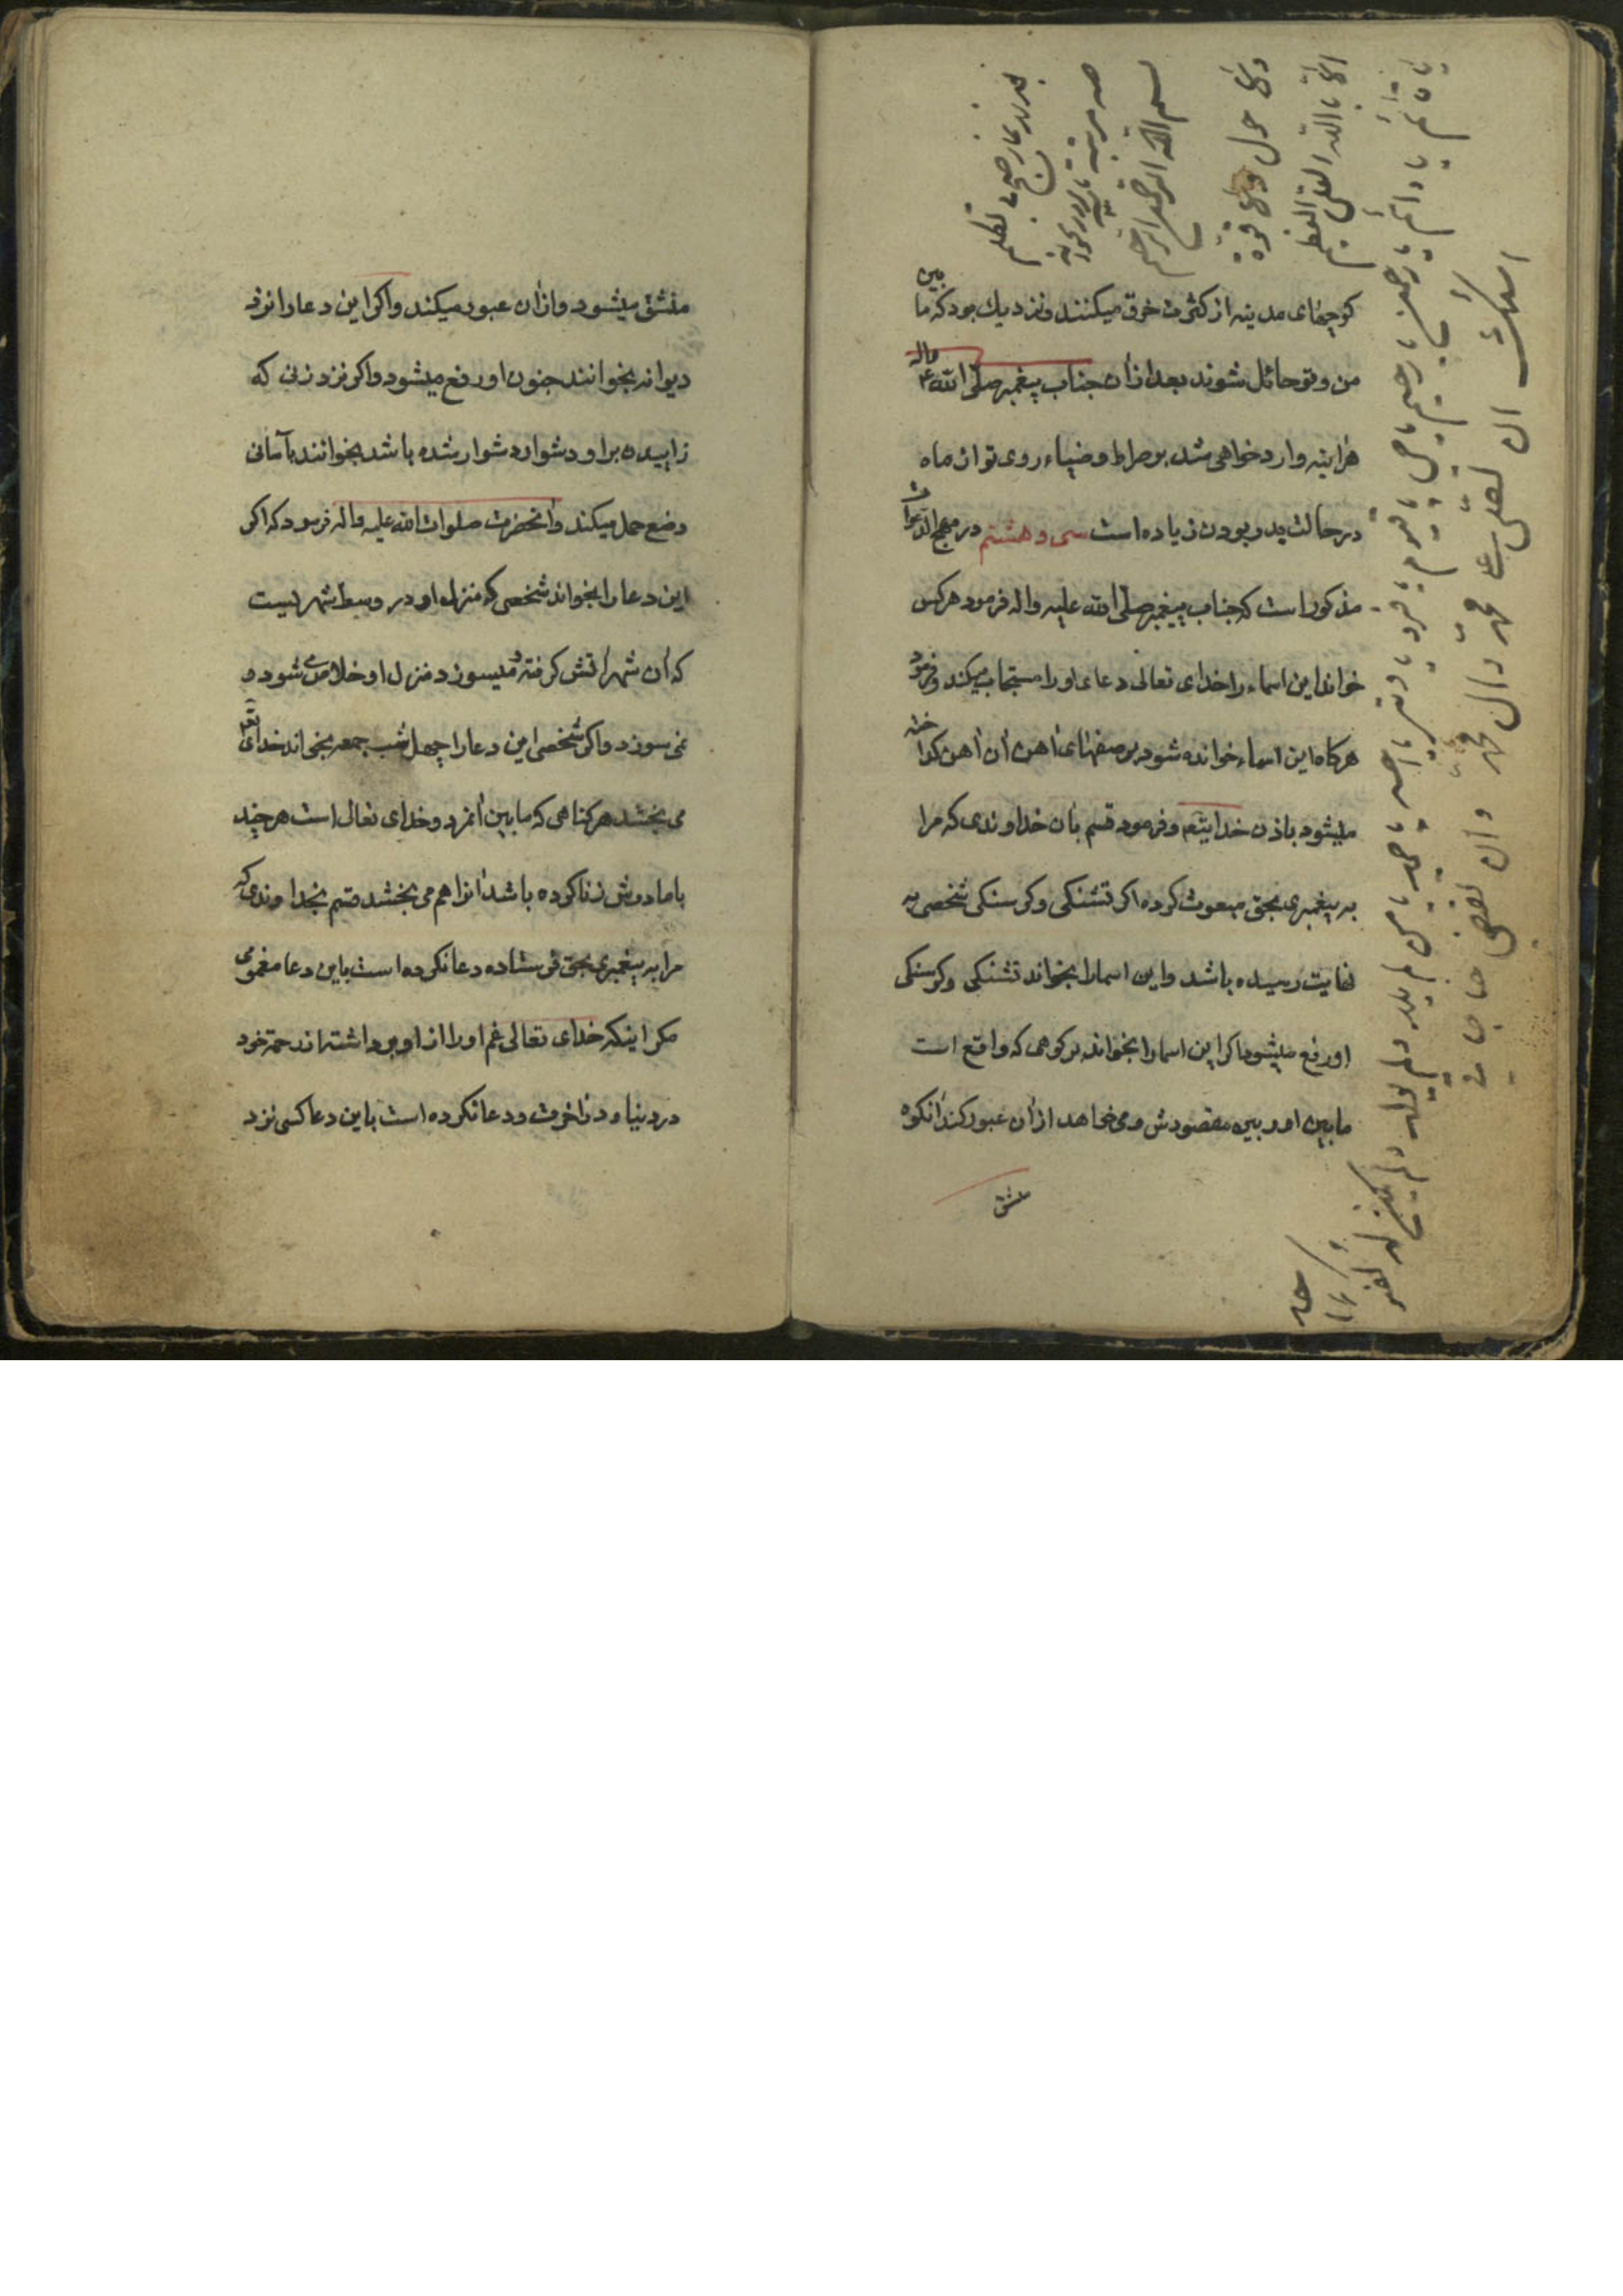 کوچهای مدینه از کثرت خرق میکنند و نزدیك بود که ما بین
من و تو حائل شوند بعد از ان جناب پیغمبر صلی الله ع واله
هراینه وارد خواهی شد بر صراط و ضیاء روی تو از ماه
در حالت بدر بودن زیاده است سی و هشتم در مهج الدعوات
مذکور است که جناب پیغمبر صلی الله علیه واله فرمود هرکس
خواند این اسماء را خدای تعالی دعای او را مستجاب میکند و فرمود
هرکاه این اسماء خوانده شود بر صفهای اهن ان اهن کداخته
میشود باذن خدایتعم و فرمود قسم بان خداوندی که مرا
به پیغمبری بحق مبعوث کرده اکر تشنکی و کرسنکی شخصی به
نهایت رسیده باشد و این اسما را بخواند تشنکی و کرسنکی
او رفع میشود و اکر این اسما را بخواند بر کوهی که واقع است
مابین او و بین مقصودش و می خواهد از ان عبور کند انکوه
منشق
بعد از نماز صبح
صد مرتبه
بسم الله الرحمن الرحیم
ولا حول ولا قوة
الا بالله العلی العظیم
یا قائم یا دائم یا رحمن یا رحیم یا حی یا قیوم یا فرد یا وتر یا احد یا صمد یا من لم یلد ولم یولد
اسئلك ان تصلی علی محمد وال محمد وان تقضی حاجاتی
منشق میشود و از ان عبور میکند و اکر این دعا را نزد
دیوانه بخوانند جنون او رفع میشود و اکر نزد زنی که
زاییدن بر او دشوار دشوار شده باشد بخوانند بآسانی
وضع حمل میکند و انحضرت صلوات الله علیه واله فرمود که اکر
این دعا را بخواند شخصی که منزل او در وسط شهریست
که ان شهر اتش کرفته و میسوزد منزل او خلاص می شود و
نمی سوزد و اکر شخصی این دعا را چهل شب جمعه بخواند خدای تعم
می بخشد هر کناهی که مابین انمرد و خدای تعالی است هر چند
با مادرش زنا کرده باشد انرا هم می بخشد قسم بخداوندی که
مرا به پیغمبری بحق فرستاده دعا نکرده است باین دعا مغمومی
مکر اینکه خدای تعالی غم او را از او برداشته اند رحمة خود
در دنیا و در اخرت و دعا نکرده است باین دعا کسی نزد